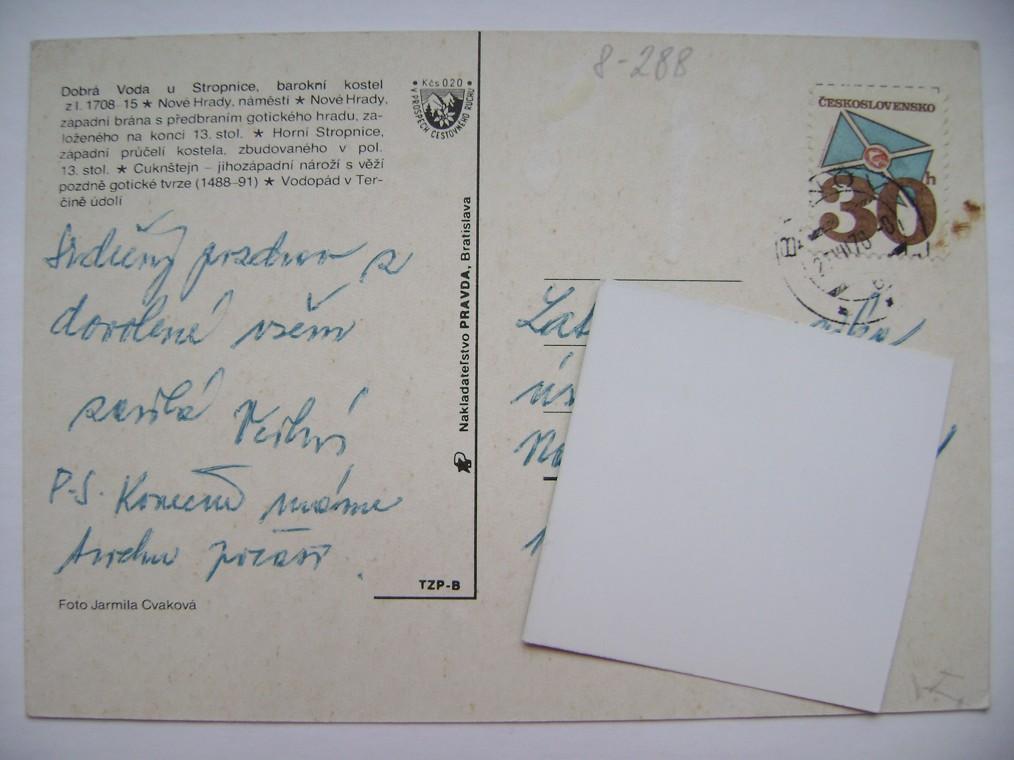 8-288
Dobrá Voda u Stropnice, barokní kostel
z l. 1708–15 ★ Nové Hrady, náměstí ★ Nové Hrady,
západní brána s předbraním gotického hradu, za-
loženého na konci 13. stol. ★ Horní Stropnice,
západní průčelí kostela, zbudovaného v pol.
13. stol. ★ Cuknštejn – jihozápadní nároží s věží
pozdně gotické tvrze (1488–91) ★ Vodopád v Ter-
čině údolí
• Kčs 020 •
V PROSPĚCH CESTOVNÉHO RUCHU
ČESKOSLOVENSKO
30h
Srdečný pozdrav z
dovolené všem
zasílá
P.S. Konečně máme
trochu počasí.
Nakladateľstvo PRAVDA, Bratislava
TZP-B
Foto Jarmila Cvaková